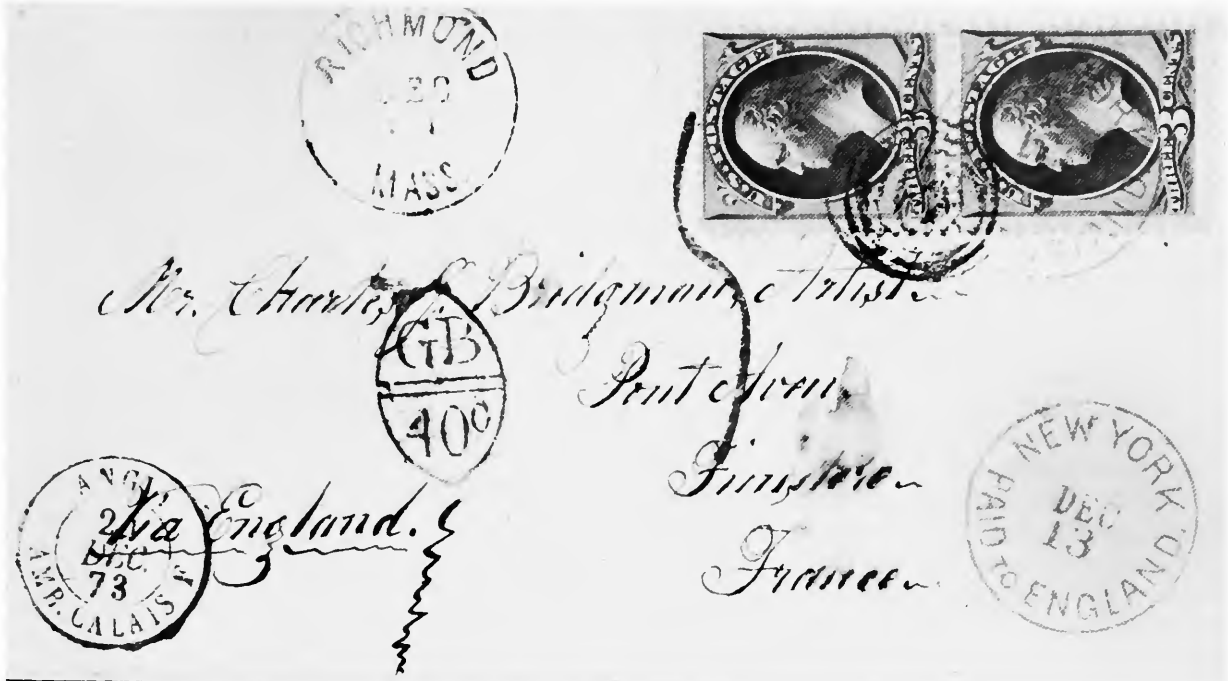 RICHMOND
MASS.
U.S. POSTAGE
U.S. POSTAGE
Mr. Charles S. Bridgman, Artist
Pont Aven,
Finistere
France
Via England.
GB
40c
ANGL.
2
DEC.
73
AMB. CALAIS F
NEW YORK.
DEC
13
PAID TO ENGLAND.